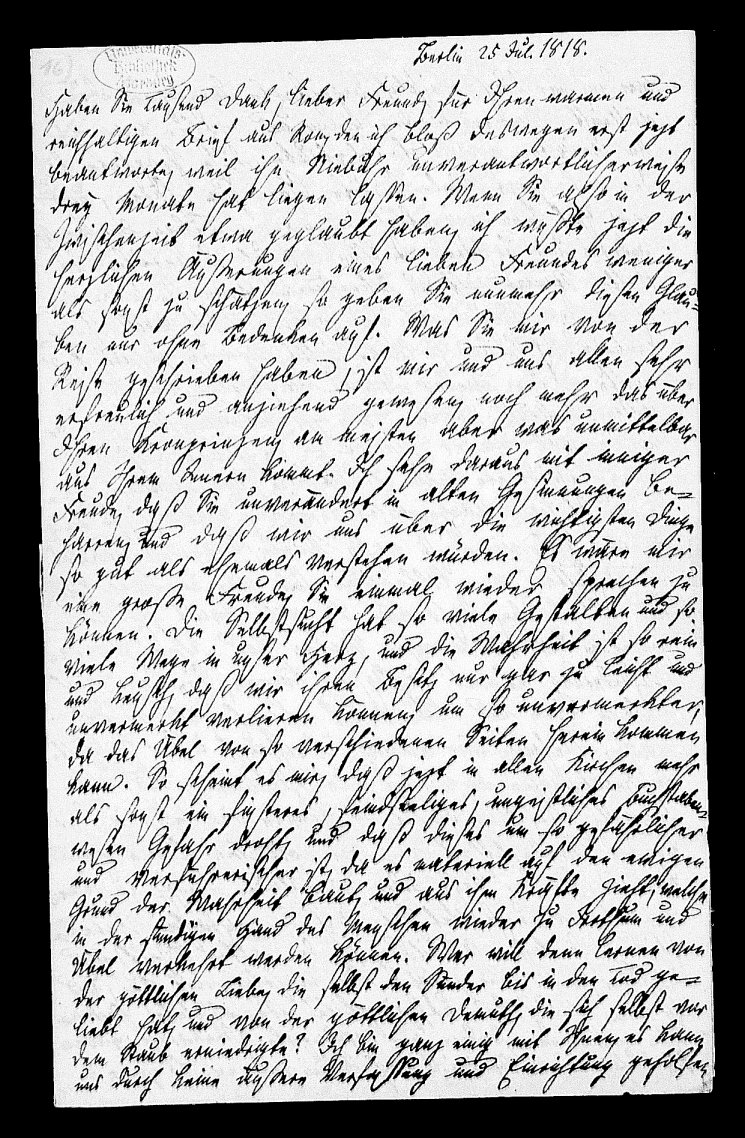 16)
Universitäts-
Bibliothek
Marburg
Berlin 25 Jul. 1818.
Haben Sie tausend Dank, lieber Freund, für Ihren warmen und
reichhaltigen Brief aus Rom, den ich bloß deswegen erst jezt
beantworte, weil ihn Niebuhr unverantwortlicherweise
drey Monate hat liegen lassen. Wenn Sie also in der
Zwischenzeit etwa geglaubt haben, ich wüßte jezt die
herzlichen Äußerungen eines lieben Freundes weniger
als sonst zu schätzen, so geben Sie nunmehr diesen Glau-
ben nur ohne Bedenken auf. Was Sie mir von der
Reise geschrieben haben, ist mir und uns allen sehr
erfreulich und anziehend gewesen, noch mehr das über
Ihren Kronprinzen, am meisten aber was unmittelbar
aus Ihrem Innern kommt. Ich sehe daraus mit inniger
Freude, daß Sie unverändert in alten Gesinnungen be-
harren, und daß wir uns über die wichtigsten Dinge
so gut als ehemals verstehen würden. Es wäre mir
eine große Freude, Sie einmal wieder sprechen zu
können. Die Selbstsucht hat so viele Gestalten und so
viele Wege in unser Herz, und die Wahrheit ist so rein
und keusch, daß wir ihren Besitz nur gar zu leicht und
unvermerkt verlieren können, um so unvermerkter,
da das Übel von so verschiedenen Seiten herein kommen
kann. So scheint es mir, daß jezt in allen Kirchen mehr
als sonst ein finsteres, feindseliges, ungeistliches Buchstaben-
wesen Gefahr droht, und daß dieses um so gefährlicher
und verführerischer ist, da es materiell auf den ewigen
Grund der Wahrheit baut, und aus ihm Kräfte zieht, welche
in der sündigen Hand des Menschen wieder zu Irrthum und
Übel verkehrt werden können. Wer will denn lernen von
der göttlichen Liebe, die selbst den Sünder bis in den Tod ge-
liebt hat, und von der göttlichen Demuth, die sich selbst vor
dem Staub erniedrigte? Ich bin ganz einig mit Ihnen, es kann
uns durch keine äußere Verfassung und Einrichtung geholfen